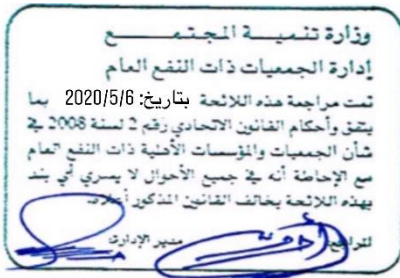 وزارة تنميـــة المجتمـــع
إدارة الجمعيات ذات النفع العام
تمت مراجعة هذه اللائحة بتاريخ: 2020/5/6 بما
يتفق وأحكام القانون الاتحادي رقم 2 لسنة 2008 في
شأن الجمعيات والمؤسسات الأهلية ذات النفع العام
مع الإحاطة أنه في جميع الأحوال لا يسري أي بند
بهذه اللائحة يخالف القانون المذكور أعلاه.
المراجع مدير الإدارة